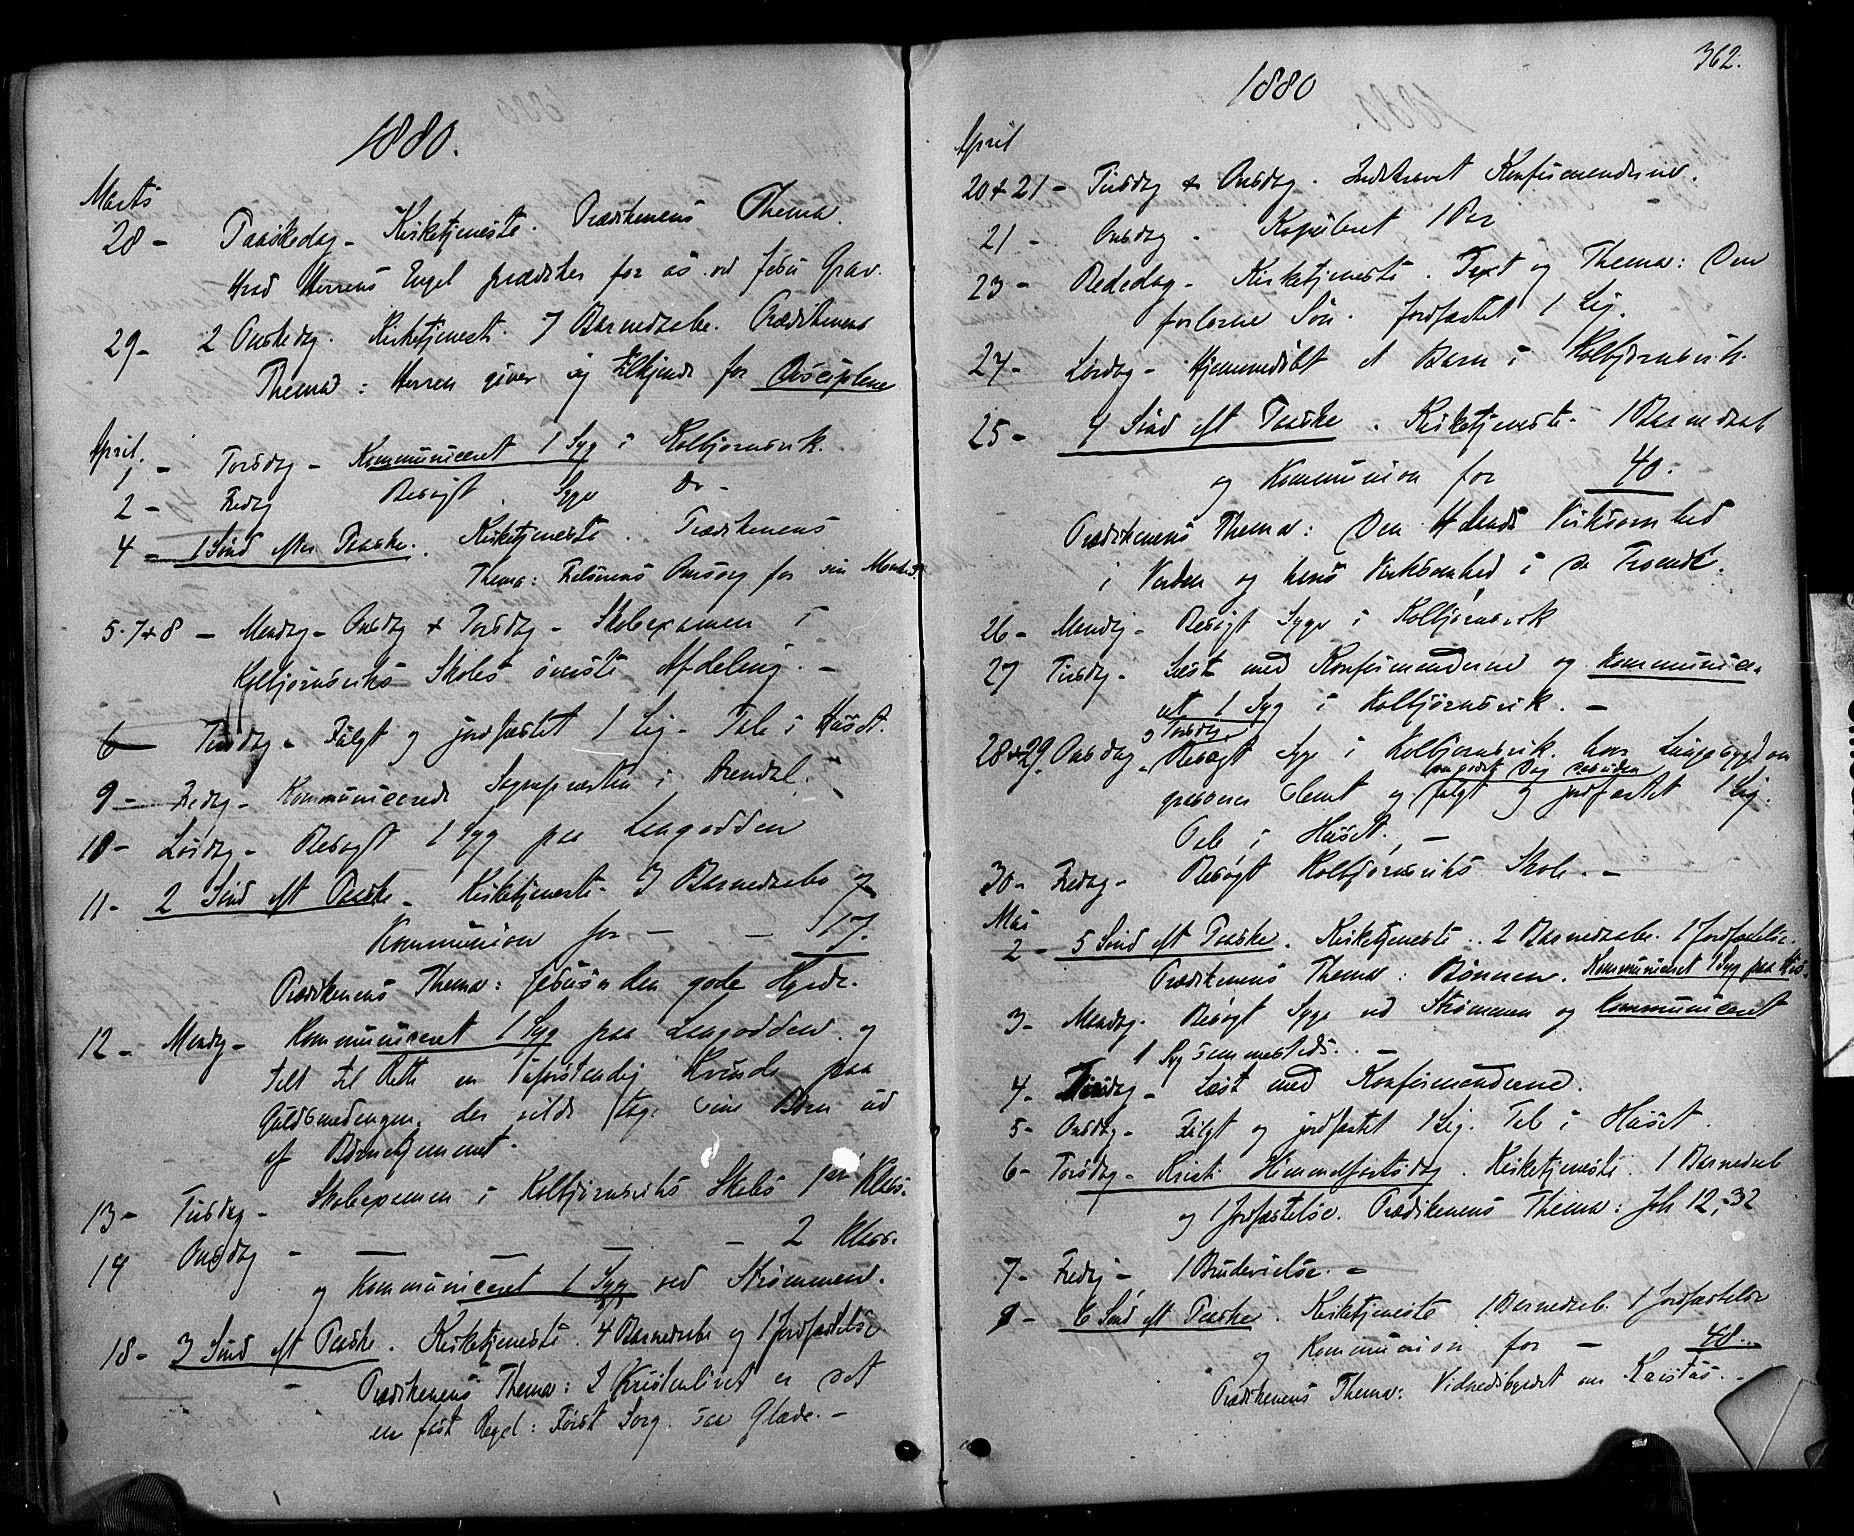 1880.
Marts
28 - Paaskedag - Kirketjeneste. Prædikenens Thema
Hvad Herrens Engel prædiker for os ved Jesu Grav.
29 - 2 Paaskedag. Kirketjeneste. 7 Barnedaabe. Prædikenens
Thema: Herren giver sig tilkjende for Disciplene
April.
1 - Torsdag - Kommuniceret 1 Syg i Kolbjørnsvik.
2 - Fredag Besøgt Syge Do -
4 - 1 Sønd efter Paaske. Kirketjeneste. Prædikenens
Thema: Frelserens Omsorg for sin Menighed
5. 7 + 8 - Mandag - Onsdag + Torsdag - Skoleexamen i
Kolbjørnsviks Skoles øverste Afdeling. -
6 - Tirsdag - Fulgt og jordfæstet 1 Lig - Tale i Huset.
9 - Fredag - Kommunicerede i Arendal.
10 - Lørdag - Besøgt 1 Syg paa Langodden
11 - 2 Sønd eft Paaske - Kirketjeneste - 3 Barnedaabe og
Kommunion for - - 17.
Prædikenens Thema: Jesus den gode Hyrde.
12 - Mandag - Kommuniceret 1 Syg paa Langodden og
talt til Rette en uforstandig Kvinde paa
Guldsmedengen, der vilde tage sine Børn ud
af Børnehjemmet.
13 - Tirsdag - Skoleexamen i Kolbjørnsviks Skoles 1ste Klasse.
14 Onsdag - - - - - 2 Klasse.
og Kommuniceret 1 Syg ved Strømmen.
18 - 3 Sønd eft Paaske. Kirketjeneste. 4 Barnedaabe og 1 Jordfæstelse.
Prædikenens Thema: I Kristenlivet er det
en fast Regel: Først Sorg, saa Glæde. -
362.
1880
April
20 + 21 - Tirsdag + Onsdag. Indskrevet Konfirmanderne.
21 - Onsdag - Kopuleret 1 Par
23 - Bededag - Kirketjeneste. Text og Thema: Den
forlorne Søn. Jordfæstet 1 Lig.
24 - Lørdag - Hjemmedøbt et Barn i Kolbjørnsvik.
25 - 4 Sønd eft Paaske. Kirketjeneste - 1 Barnedaab
og Kommunion for 40.
Prædikenens Thema: Den H Aands Virksomhed
i Verden og hans Virksomhed i de Troende.
26 - Mandag - Besøgt Syge i Kolbjørnsvik
27 Tirsdag - Læst med Konfirmanderne og Kommunice-
ret 1 Syg i Kolbjørnsvik. -
og Torsdag
28 + 29. Onsdag - Besøgt Syge i Kolbjørnsvik, hvor Lungesygdom
grasserer slemt og fulgt og jordfæstet 1 Lig.
Tale i Huset. -
30 - Fredag - Besøgt Kolbjørnsviks Skole. -
Mai
2 - 5 Sønd eft Paaske. Kirketjeneste. 2 Barnedaabe. 1 Jordfæstelse.
Prædikenens Thema: Bønnen. Kommuniceret 1 Syg paa His.
3 - Mandag. Besøgt Syge ved Strømmen og Kommuniceret
1 Syg sammesteds. -
4 - Tirsdag - Læst med Konfirmanderne.
5 - Onsdag - Fulgt og jordfæstet 1 Lig. Tale i Huset.
6 - Torsdag - Kristi Himmelfartsdag. Kirketjeneste. 1 Barnedaab
og 1 Jordfæstelse. Prædikenens Thema: Joh 12, 32
7 - Fredag - 1 Brudevielse. -
9 - 6 Sønd eft Paaske. Kirketjeneste 1 Barnedaab. 1 Jordfæstelse
og Kommunion for - 48.
Prædikenens Thema: Vidnesbyrdet om Kristus. -